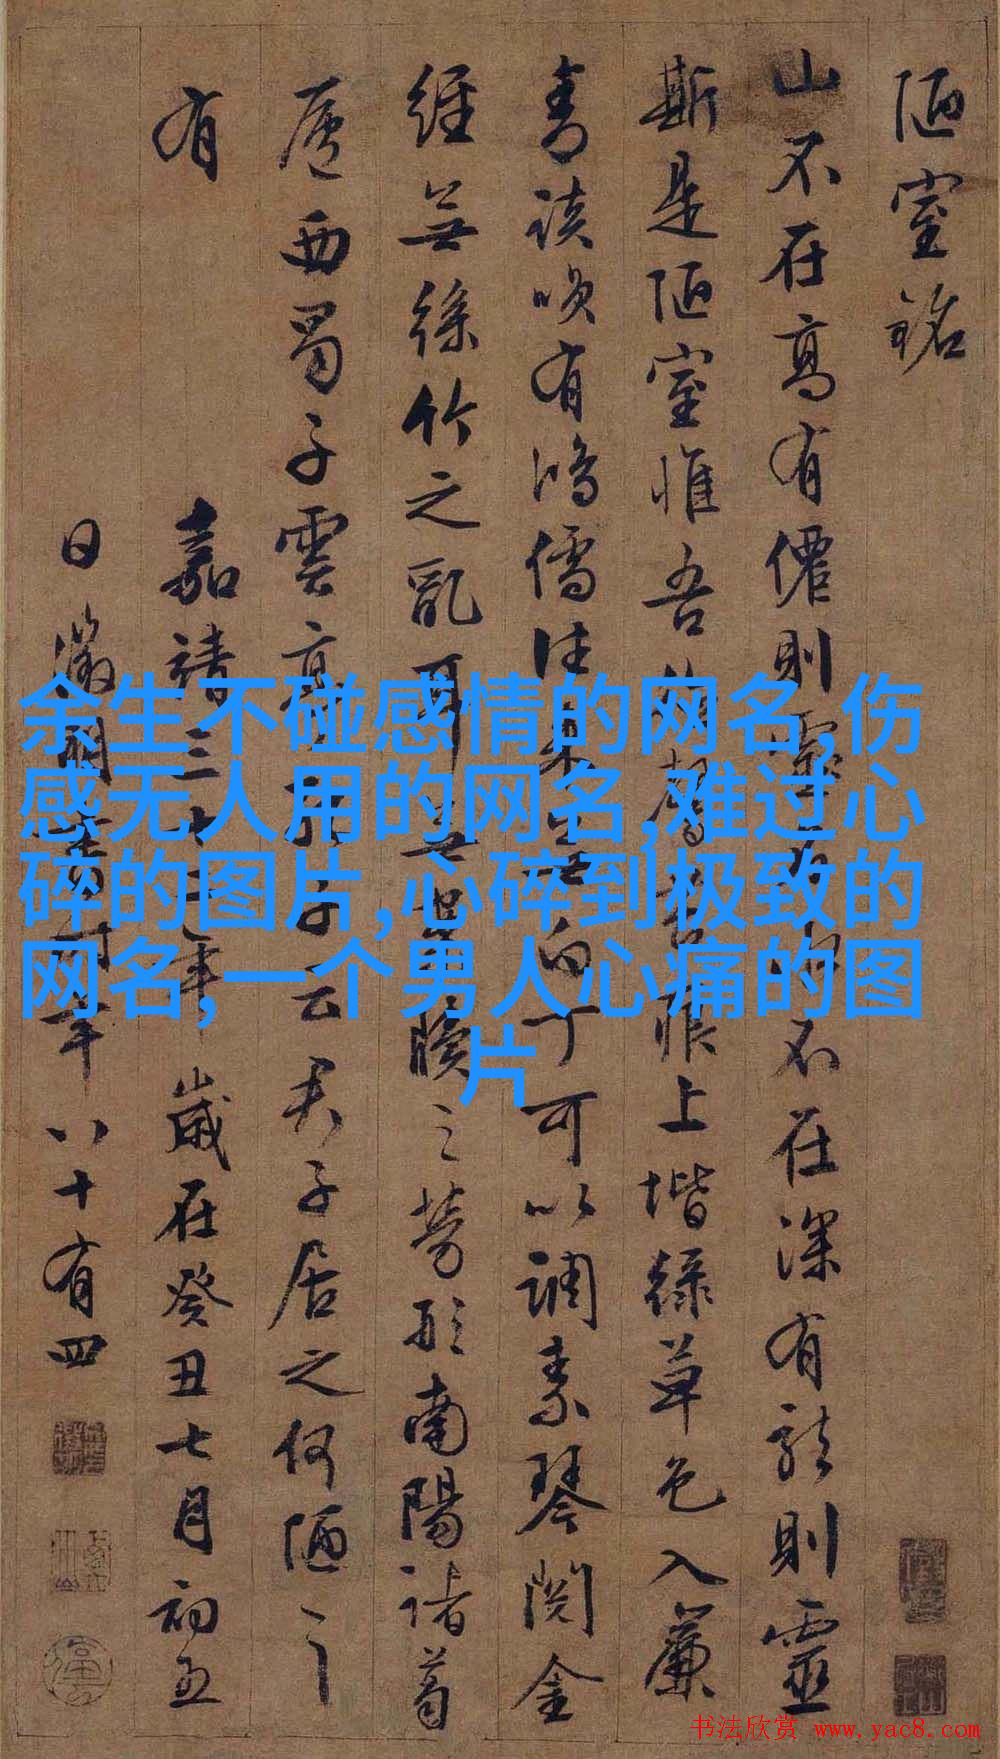 陋室銘
山不在高有僊則 不在深有龍則靈
斯是陋室惟吾德馨苔痕上堦綠草色入簾
青談笑有鴻儒往来無白丁可以調素琴閱金
經無絲竹之亂耳無案牘之勞形南陽諸葛
廬西蜀子雲亭孔子云君子居之何陋之
有
嘉靖三十二年歲在癸丑七月初五
日徵明書時年八十有四
余生不碰感情的网名,伤
感无人用的网名,难过心
碎的图片,心碎到极致的
网名,一个男人心痛的图
片
书法欣赏 www.yac8.com